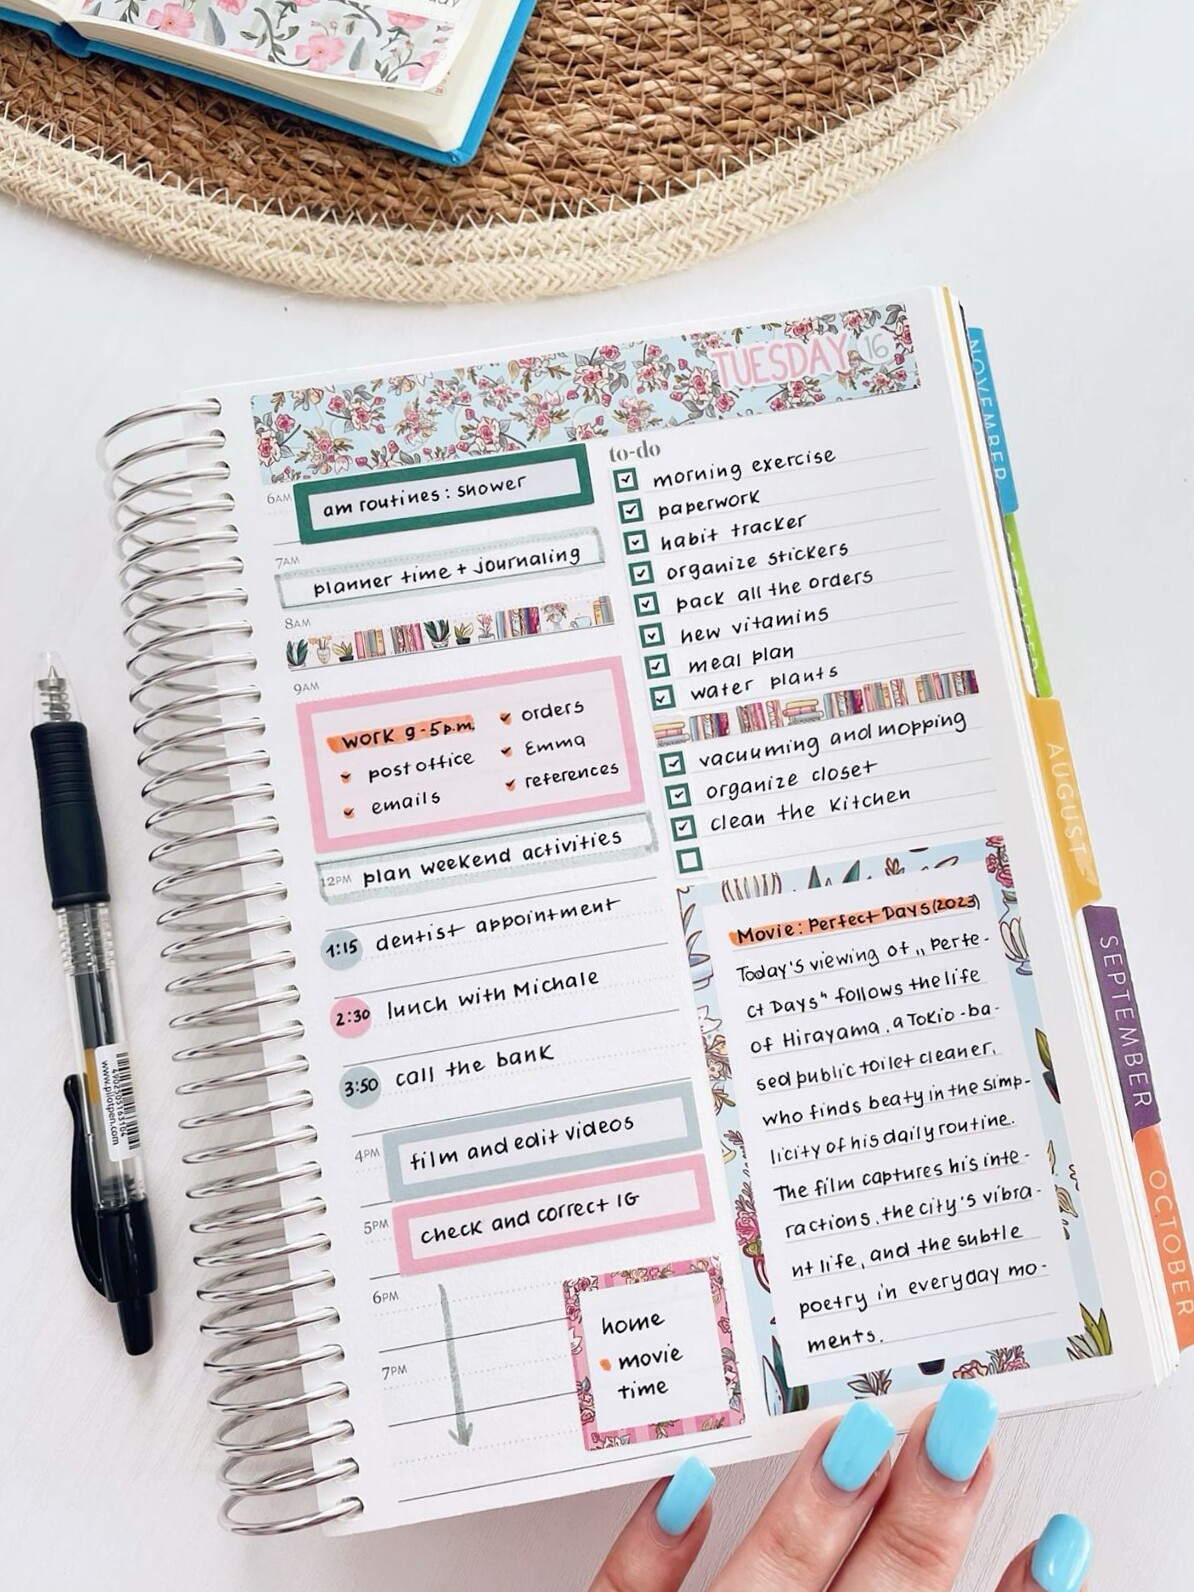 TUESDAY 16
6AM
am routines: shower
7AM
planner time + journaling
8AM
9AM
work 9-5 p.m.
post office
emails
orders
Emma
references
12PM
plan weekend activities
1:15 dentist appointment
2:30 lunch with Michale
3:50 call the bank
4PM
film and edit videos
5PM
check and correct IG
6PM
7PM
home
movie
time
to-do
morning exercise
paperwork
habit tracker
organize stickers
pack all the orders
new vitamins
meal plan
water plants
vacuuming and mopping
organize closet
clean the kitchen
Movie: Perfect Days (2023)
Today's viewing of „Perfe-
ct Days" follows the life
of Hirayama, a Tokio-ba-
sed public toilet cleaner,
who finds beaty in the simp-
licity of his daily routine.
The film captures his inte-
ractions, the city's vibra-
nt life, and the subtle
poetry in everyday mo-
ments.
NOVEMBER
AUGUST
SEPTEMBER
OCTOBER
www.pilotpen.com